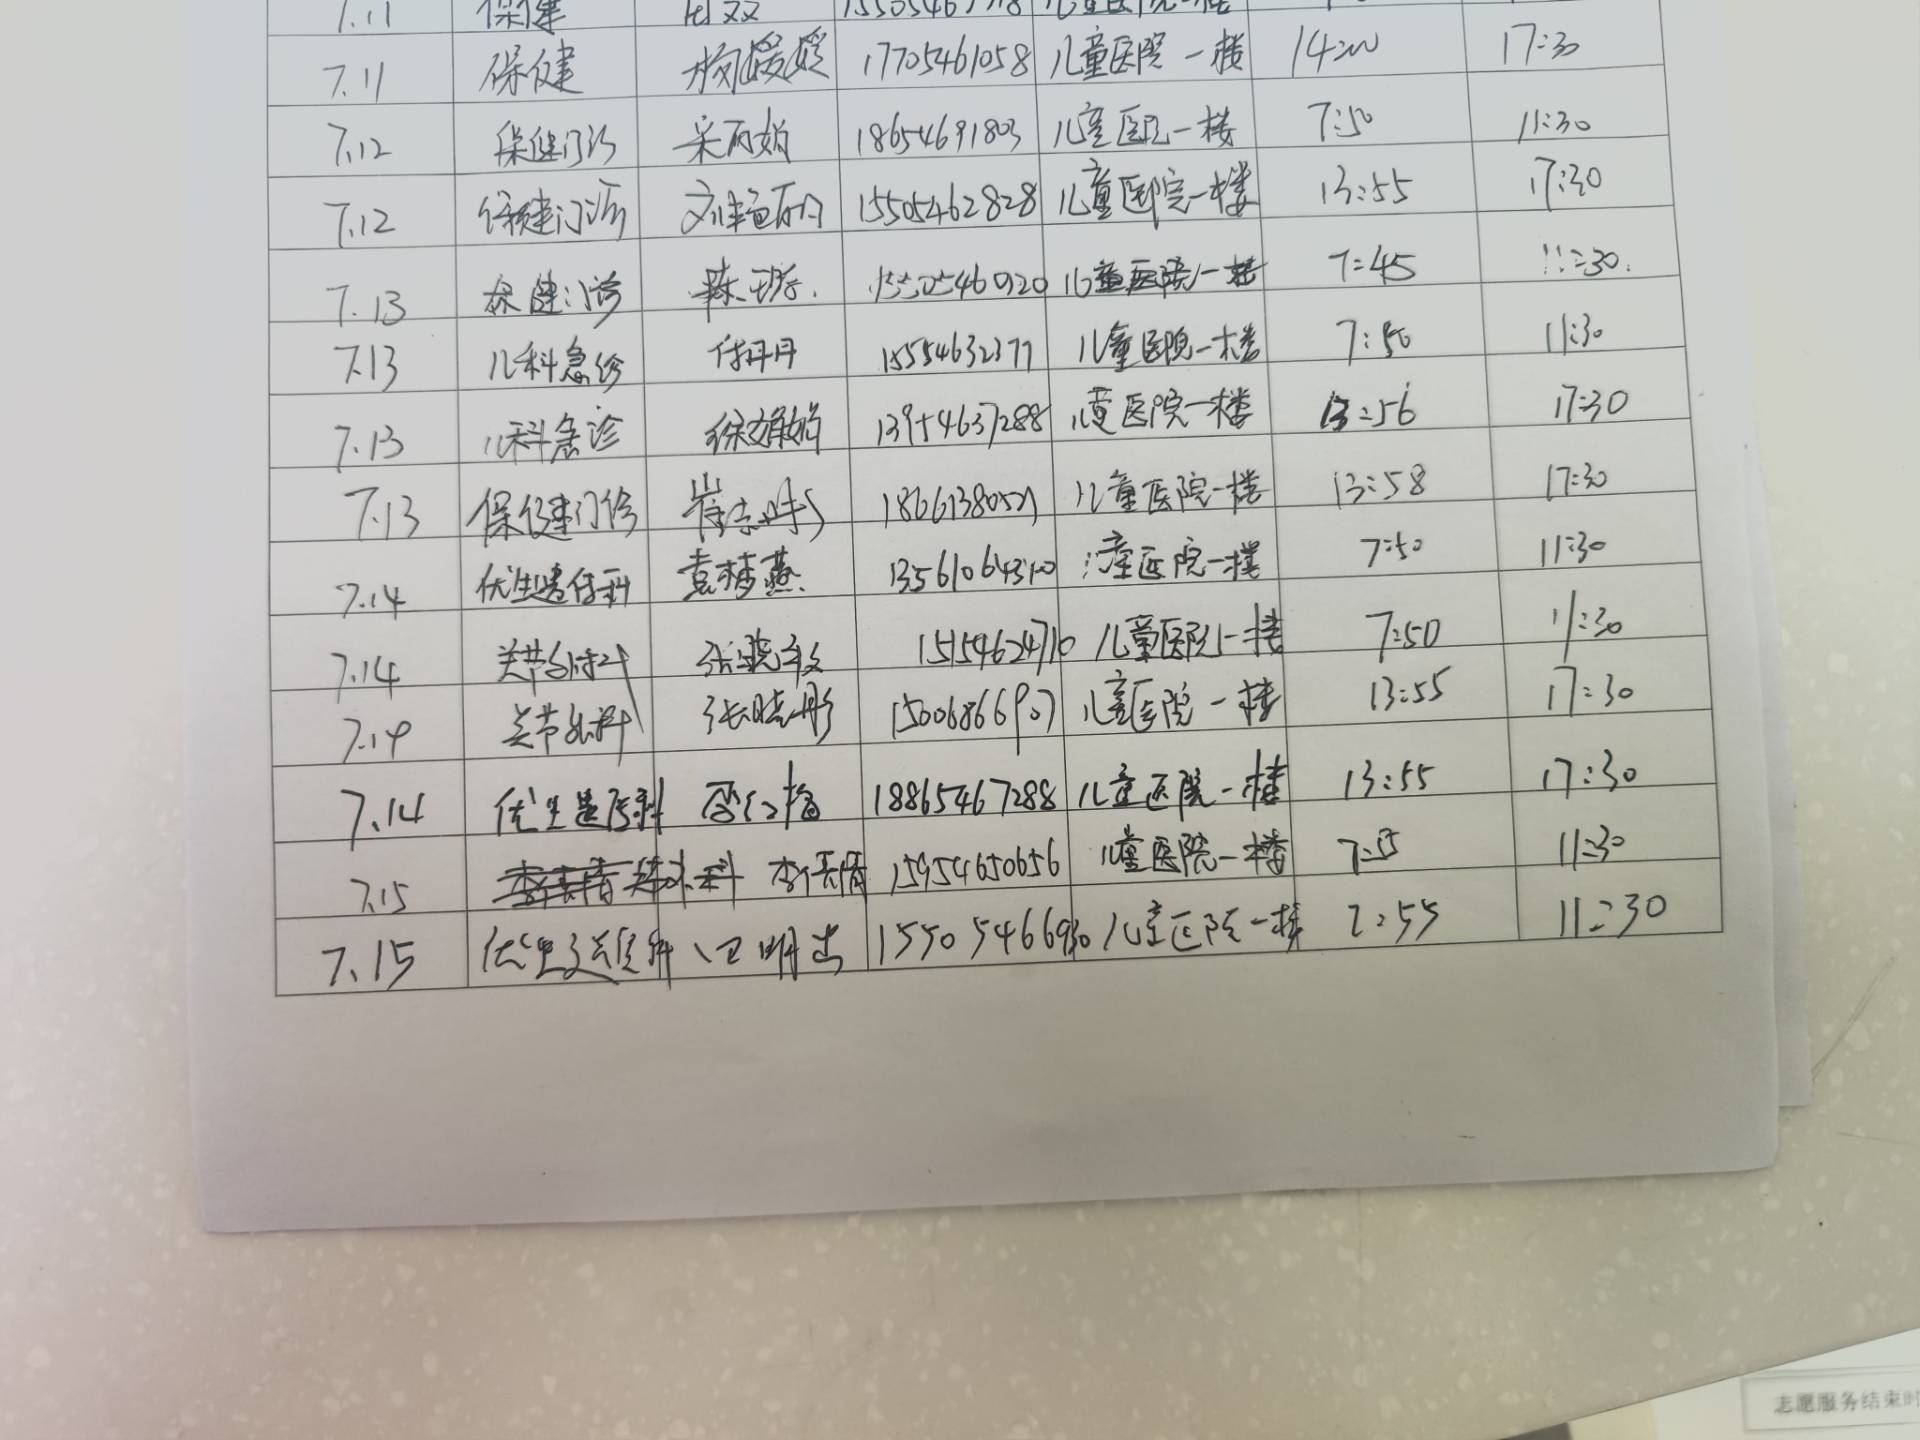 7.11 保健 15505467718 儿童医院一楼
7.11 保健 杨媛媛 17705461058 儿童医院一楼 14:00 17:30
7.12 保健门诊 18654691803 儿童医院一楼 7:50 11:30
7.12 保健门诊 15505462828 儿童医院一楼 13:55 17:30
7.13 保健门诊 儿童医院一楼 7:45 11:30.
7.13 儿科急诊 付丹丹 15554632377 儿童医院一楼 7:50 11:30
7.13 儿科急诊 徐娟娟 13954637288 儿童医院一楼 13:56 17:30
7.13 保健门诊 儿童医院一楼 13:58 17:30
7.14 优生遗传科 袁梦燕 儿童医院一楼 7:50 11:30
7.14 关节外科 张晓敏 15154624710 儿童医院一楼 7:50 11:30
7.14 关节外科 张晓彤 15006866907 儿童医院一楼 13:55 17:30
7.14 优生遗传科 18865467288 儿童医院一楼 13:55 17:30
7.15 15954650656 儿童医院一楼 7:55 11:30
7.15 优生遗传科 15505466930 儿童医院一楼 7:55 11:30
志愿服务结束时